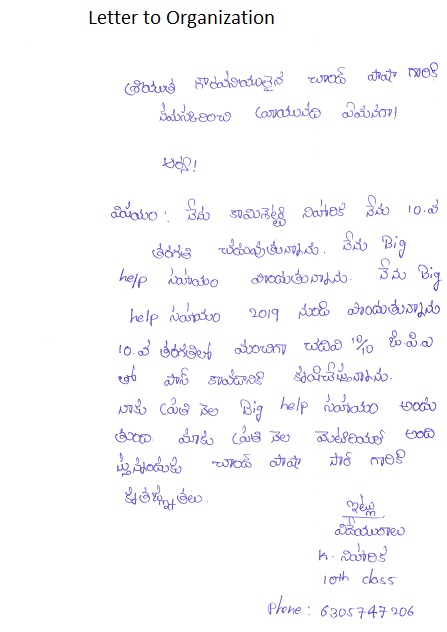 Letter to Organization
శ్రీయుత గౌరవనీయులైన చాంద్ పాషా గారికి
నమస్కరించి వ్రాయునది ఏమనగా!
ఆర్యా!
విషయం : నేను కామిశెట్టి నిహారిక నేను 10.వ
తరగతి చదువుతున్నాను. నేను Big
help సహాయం పొందుతున్నాను. నేను Big
help సహాయం 2019 నుండి పొందుతున్నాను
10.వ తరగతిలో మంచిగా చదివి 10/10 జి.పి.ఎ
తో పాస్ కావడానికి కృషిచేస్తున్నాను.
నాకు ప్రతి నెల Big help సహాయం అందు
తుంది. మాకు ప్రతి నెల మెటీరియల్ అంది
స్తున్నందుకు చాంద్ పాషా సార్ గారికి
కృతజ్ఞతలు.
ఇట్లు
విదేయురాలు
K. నిహారిక
10th class
Phone : 6305747206